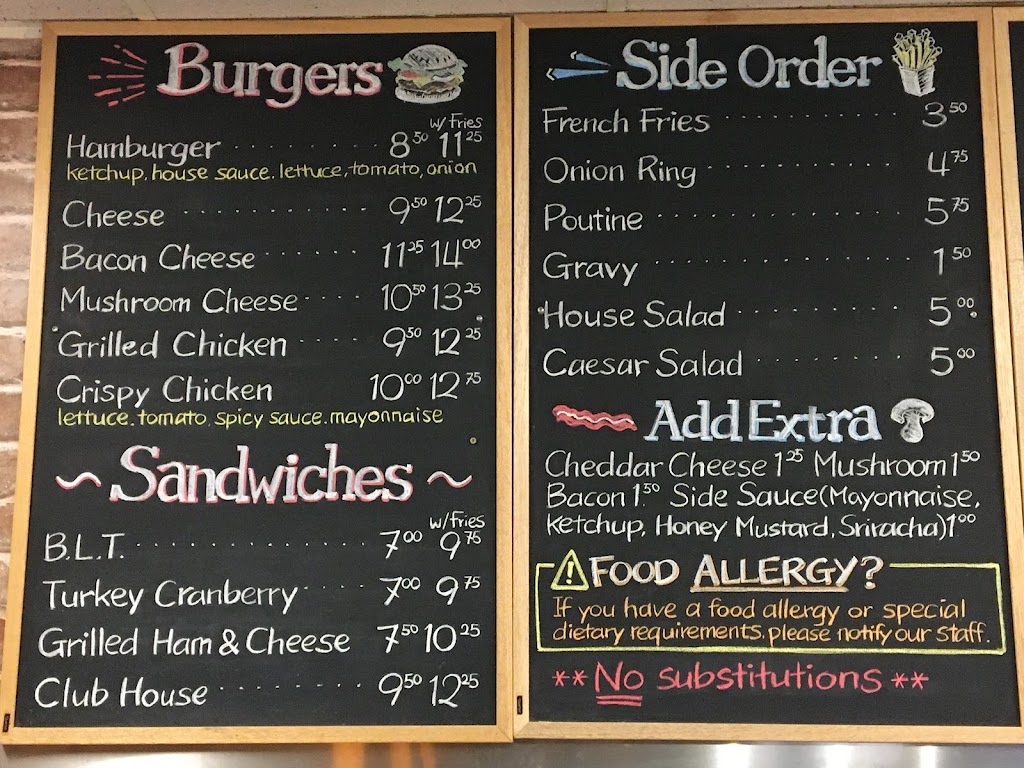 Burgers
w/ Fries
Hamburger 8.50 11.25
ketchup, house sauce, lettuce, tomato, onion
Cheese 9.50 12.25
Bacon Cheese 11.25 14.00
Mushroom Cheese 10.50 13.25
Grilled Chicken 9.50 12.25
Crispy Chicken 10.00 12.75
lettuce, tomato, spicy sauce, mayonnaise
~ Sandwiches ~
w/Fries
B.L.T. 7.00 9.75
Turkey Cranberry 7.00 9.75
Grilled Ham & Cheese 7.50 10.25
Club House 9.50 12.25
Side Order
French Fries 3.50
Onion Ring 4.75
Poutine 5.75
Gravy 1.50
House Salad 5.00
Caesar Salad 5.00
Add Extra
Cheddar Cheese 1.25 Mushroom 1.50
Bacon 1.50 Side Sauce (Mayonnaise,
Ketchup, Honey Mustard, Sriracha) 1.00
! FOOD ALLERGY?
If you have a food allergy or special
dietary requirements, please notify our staff.
** No substitutions **